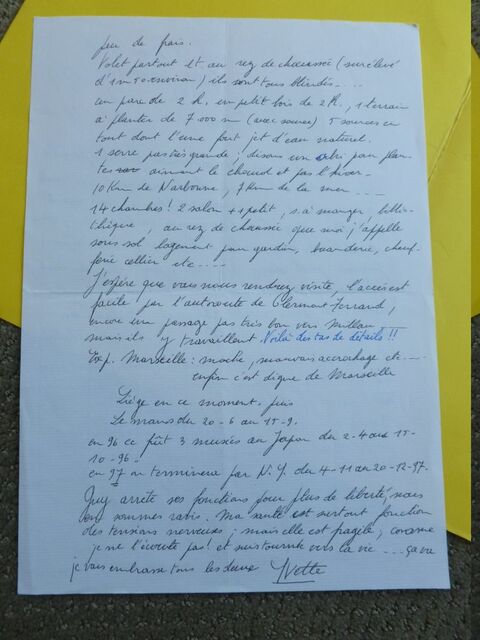 peu de frais.
Volet partout et au rez de chaussée (surélevé
d'1m50 environ) ils sont tous blindés....
un parc de 2 h. un petit bois de 2h, 1 terrain
à planter de 7000 m (avec source) 5 sources en
tout dont l'une fait jet d'eau naturel.
1 serre pas très grande, disons un abri pour plan-
tes aimant le chaud et pas l'hiver.
10 Km de Narbonne, 7 Km de la mer ...
14 chambres! 2 salon + 1 petit, s. à manger, biblio-
thèque, au rez de chaussée que moi j'appelle
sous sol logement pour gardien, buanderie, chauf-
ferie cellier etc....
J'espère que vous nous rendrez visite, l'accès est
facile par l'autoroute de Clermont-Ferrand,
encore un passage pas très bon vers Millau
mais ils y travaillent. Voilà des tas de détails!!
Exp. Marseille: moche, mauvais accrochage etc....
enfin c'est digne de Marseille
Liège en ce moment. puis
Le mans du 20-6 au 15-9.
en 96 ce fût 3 musées au Japon du 2-4 au 15-
10-96.
en 97 on terminera par N.Y. du 4-11 au 20-12-97.
Guy arrête ses fonctions pour plus de liberté, nous
en sommes ravis. Ma santé est surtout fonction
des tensions nerveuses, mais elle est fragile, comme
je ne l'écoute pas! et suis tournée vers la vie ... ça va
je vous embrasse tous les deux Yvette